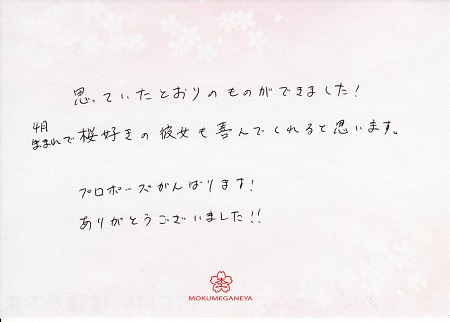 思っていたとおりのものができました!
4月
まれで桜好きの彼女も喜んでくれると思います。
プロポーズがんばります!
ありがとうございました!!
MOKUMEGANEYA